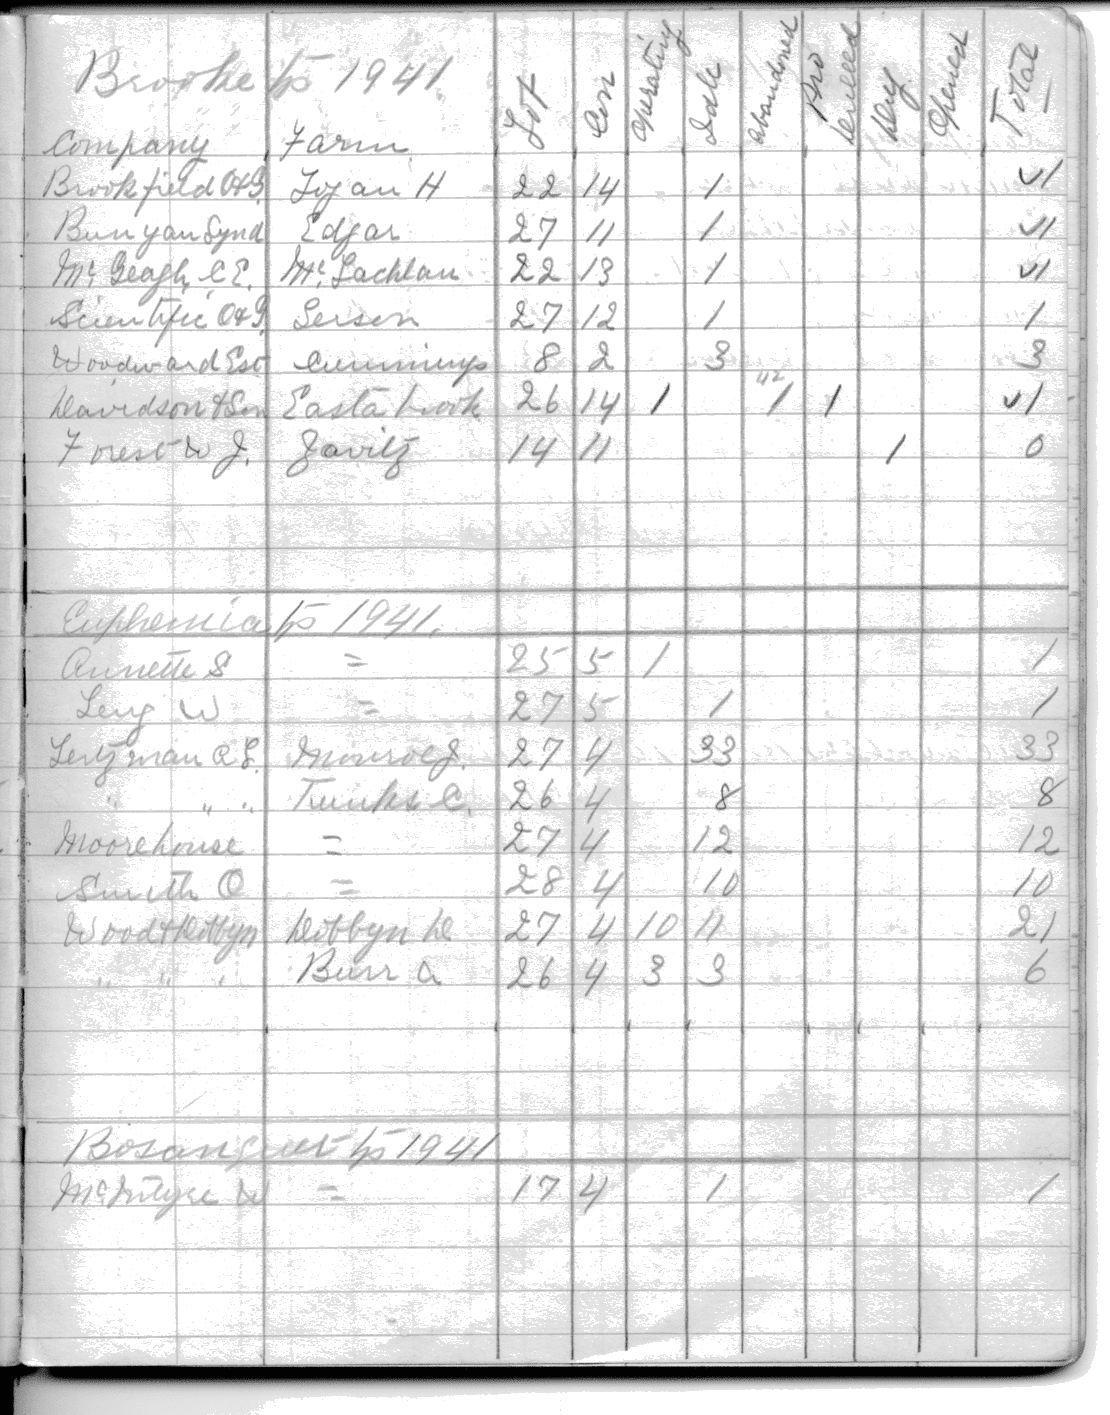 Brooke tp 1941.
Company Farm Lot Con Operating Idle abandoned Pro Drilled Dry Opened Total
Brookfield O&G. Logan H 22 14 1 √1
Bunyan Synd Edgar 27 11 1 √1
McGeagh, C E. McLachlan 22 13 1 √1
Scientific O&G. Serson 27 12 1 1
Woodward Est Cummings 8 2 3 3
Davidson & Son Eastabrook 26 14 1 "42 1 1 √1
Forest W J. Zavitz 14 11 1 0
Euphemia tp 1941.
Annette S = 25 5 1 1
Leng W = 27 5 1 1
Monroe J. 27 4 33 33
" " " Trunks C. 26 4 8 8
Moorehouse = 27 4 12 12
Smith O = 28 4 10 10
Wood & Dobbyn Dobbyn D 27 4 10 11 21
" " " Burr A 26 4 3 3 6
Bosanquet tp 1941
McIntyre W = 17 4 1 1